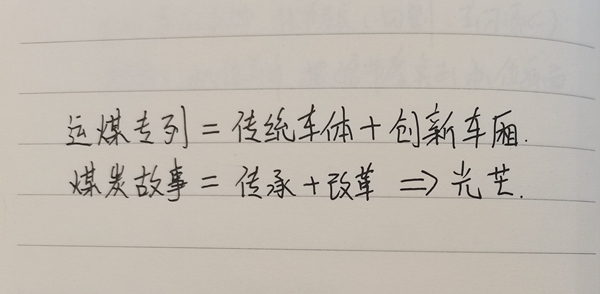 运煤专列=传统车体+创新车厢.
煤炭故事=传承+改革 => 光芒.